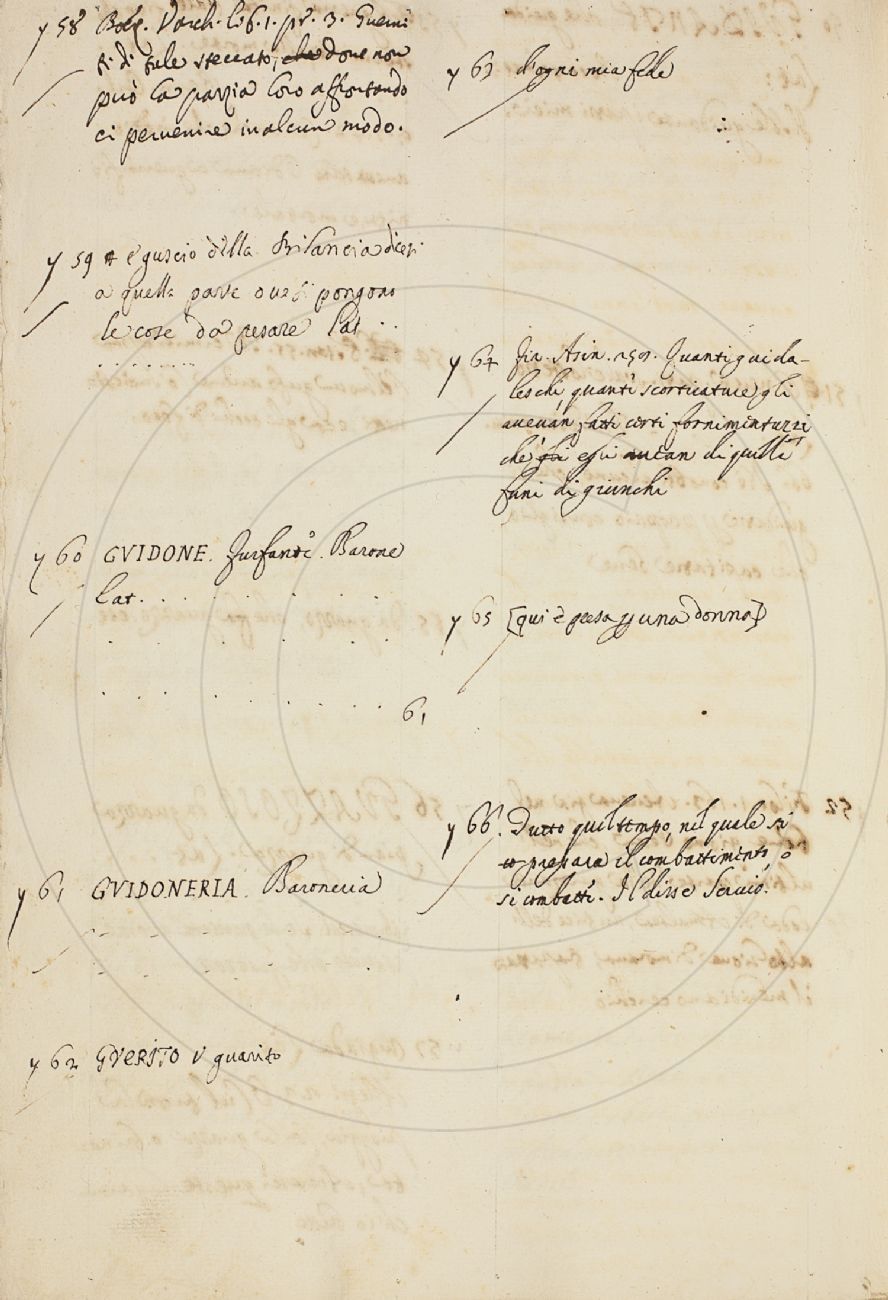 y 58 Boez. Varch. lib. 1. pr. 3. Guerni
ti di tale steccato, che dove non
può la pazzia loro affrontando
ci pervenire in alcun modo.
y 59 e guscio della Bilancia dicesi
a quella parte ove si pongono
le cose da pesare Lat . .
. . . . . . . .
y 60 GVIDONE. Furfante. Barone
Lat. . . . . . . .
61
y 61 GVIDONERIA. Baroneria
y 62 GVERITO V guarito
y 63 d'ogni mia fede
y 64 Fir. Asin. 150. Quanti guida-
leschi, quanti scorticature gli
avevan fatti certi fornimentuzzi
che essi avean di quelle
funi di giunchi
y 65 [qui è presa p una donna]
y 66. Tutto quel tempo, nel quale si
prepara il combattimento, ò
si combatte. Il disse Servio.
52